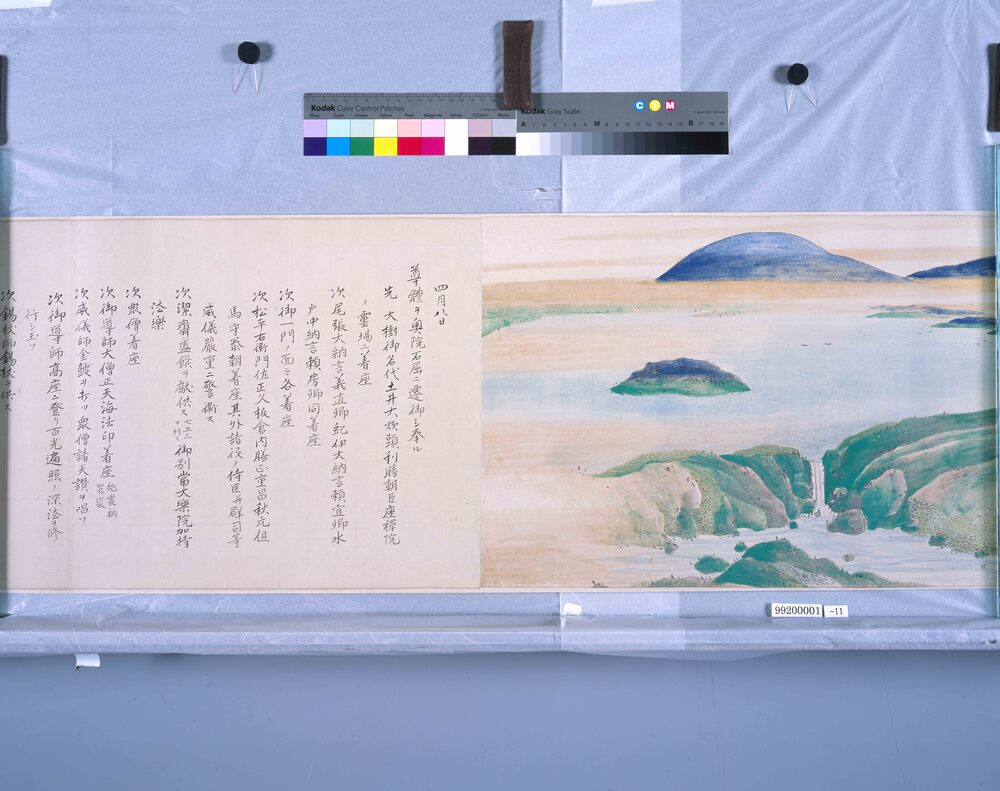 Kodak Color Control Patches
Blue Cyan Green Yellow Red Magenta White 3/Color Black
Kodak Gray Scale
C Y M
A 1 2 3 4 5 6 M 8 9 10 11 12 13 14 15 B 17 18 19
四月八日
尊體ヲ奥院石屈ニ遷御シ奉ル
先 大樹御名代土井大炊頭利勝朝臣座禪院
ノ霊場ニ着座
次尾張大納言義直卿紀伊大納言頼宣卿水
戸中納言頼房卿同着座
次御一門ノ面々各着座
次松平右衛門佐正久板倉内膳正重昌秋元但
馬守泰朝着座其外諸役ノ侍臣并群司等
威儀嚴重ニ警衛ス
次潔齋盛饌ヲ獻供ス七五三ヲ列ス御別當大樂院加持
法樂
次衆僧着座
次御導師大僧正天海法印着座袍裳衲袈裟
次威儀師金鈸ヲ打ツ衆僧諸天讃ヲ唱フ
次御導師高座ニ登リ吉光遍照ノ深法ヲ修
行シ玉フ
次錫杖師錫杖ヲ供ス
99200001 -11